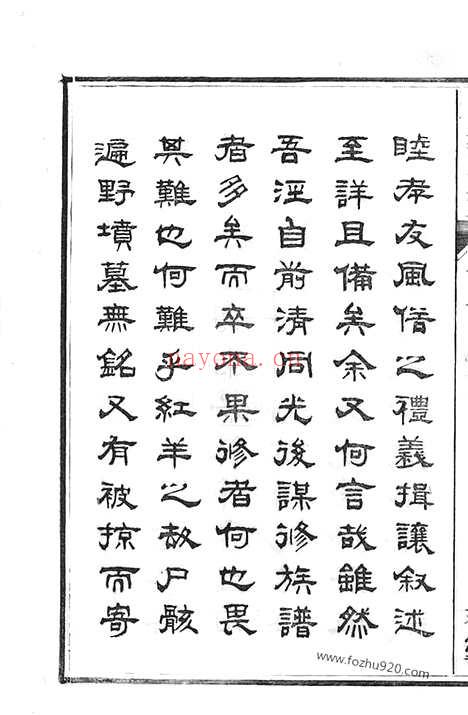 睦孝友風俗之禮義揖讓叙述
至詳且備矣余又何言哉雖然
吾涇自前清同光後謀修族譜
者多矣而卒不果修者何也畏
其難也何難乎紅羊之劫尸骸
遍野墳墓無銘又有被掠而寄
nayona.cn
www.fozhu920.com